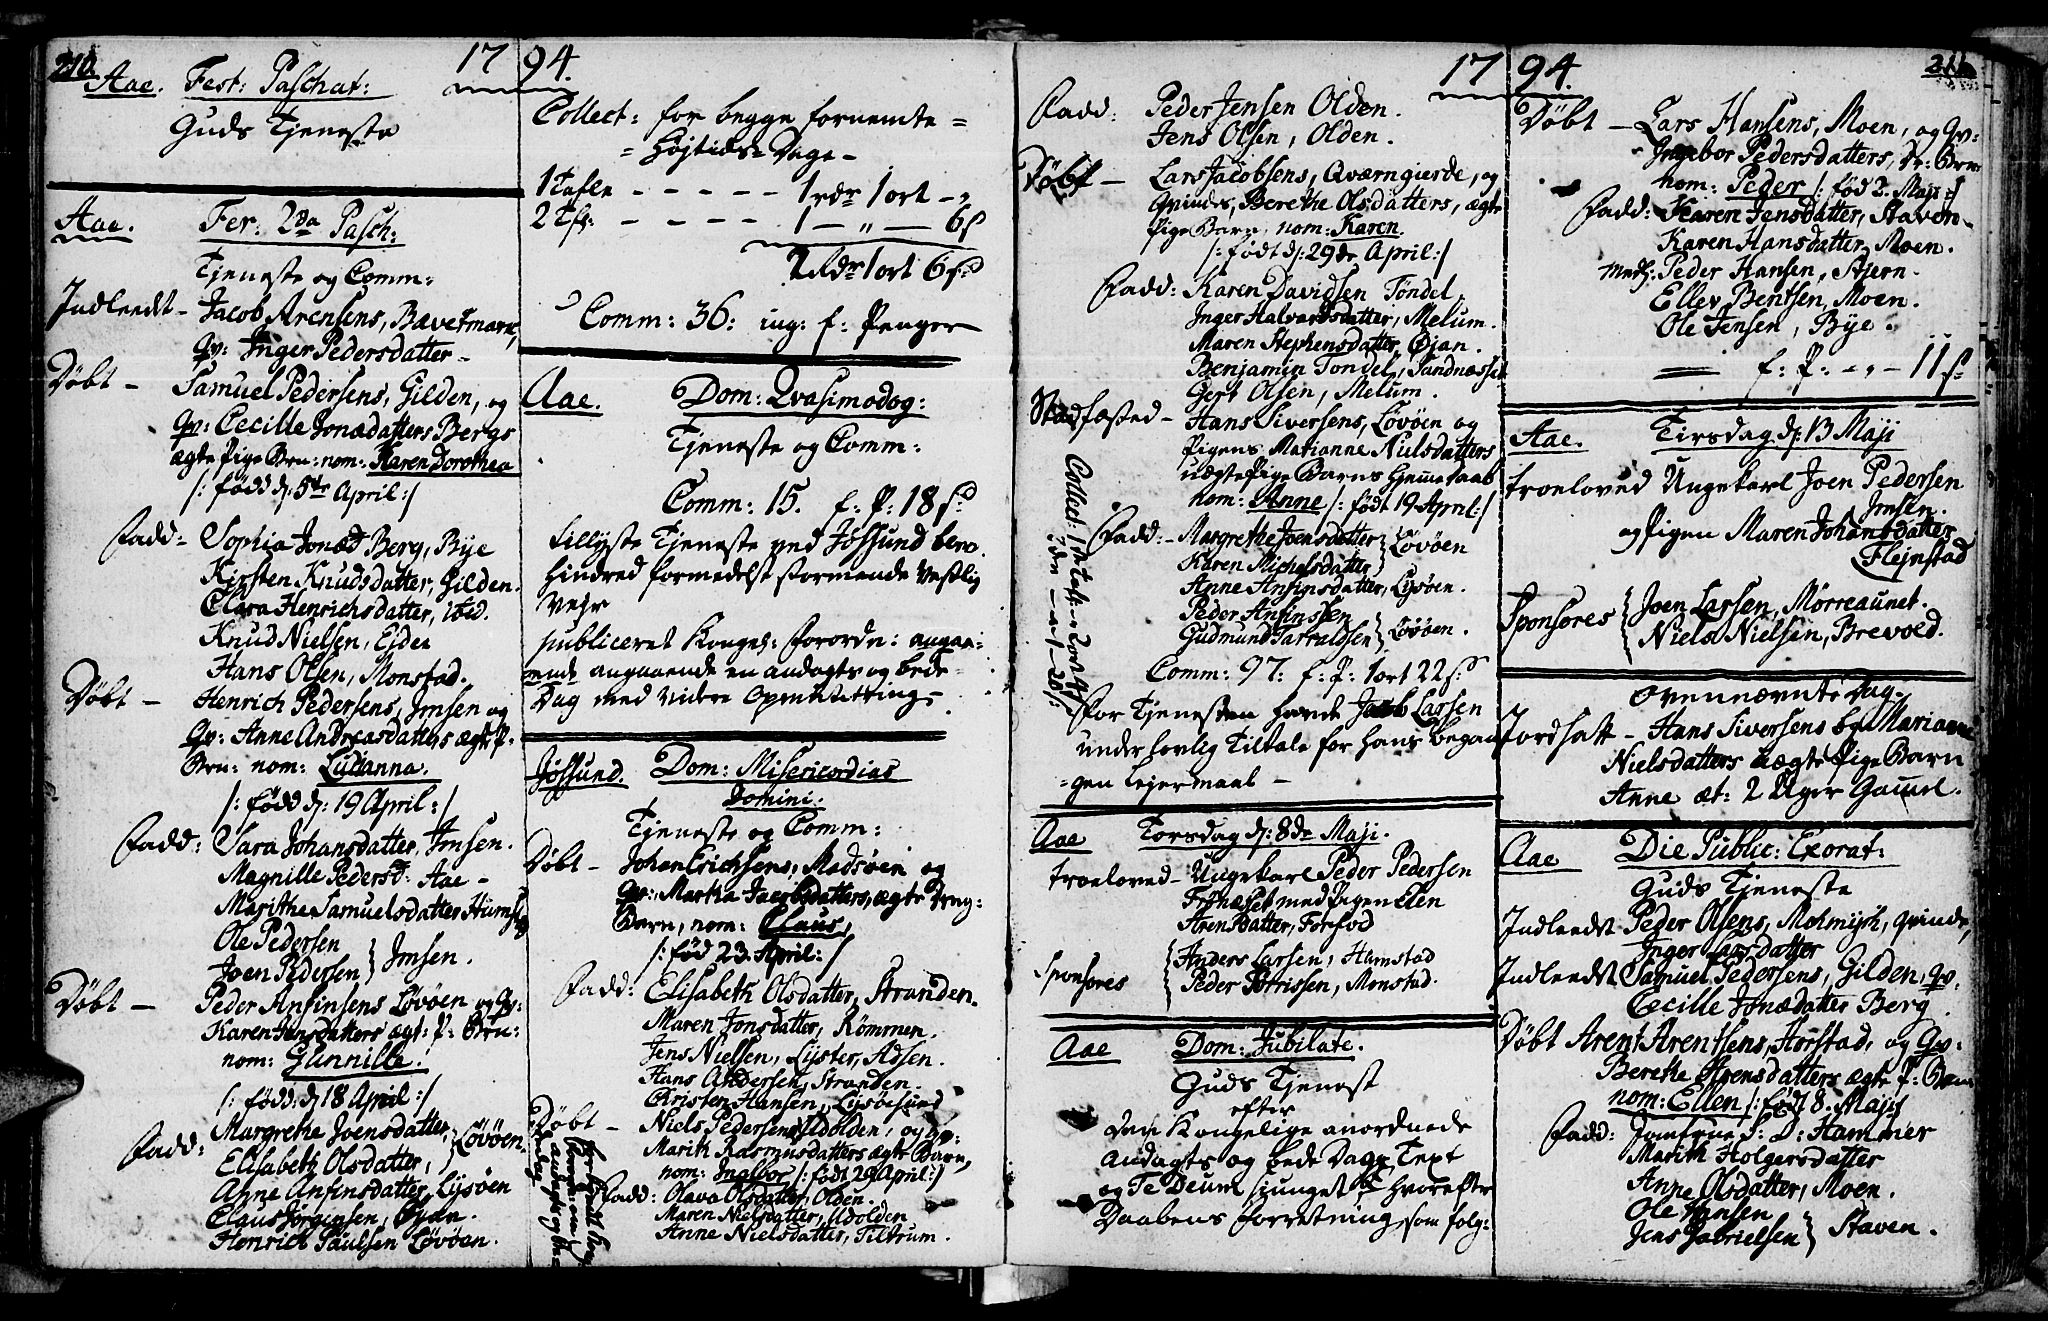 210.
1794.
Aae. Fest: Paschat:
Guds Tjeneste
Aae. Fer: 2da Pasch:
Tjeneste og Comm:
Indleedt - Jacob Arensens, Bævermark,
Qv: Inger Pedersdatter -
Døbt - Samuel Pedersens, Gilden, og
Qv: Cecille Jonædatters Bergs
ægte Pige Brn: nom: Karen Dorothea
/: född d: 5te April :/
Fadd: Sophia Jonæd Berg, Bye
Kirsten Knudsdatter, Gilden.
Clara Henrichsdatter, ibid.
Knud Nielsen, Eiden
Hans Olsen, Monstad.
Døbt - Henrich Pedersens, Imsen og
Qv: Anne Andreasdatters ægte P:
Brn: nom: Lucianna.
/: född d: 19 April :/
Fadd: Sara Johansdatter, Imsen.
Magnille Pedersd: Aae -
Marithe Samuelsdatter
Ole Pedersen
Joen Pedersen } Imsen.
Døbt - Peder Anfinsens Løvøen og Qv:
Karen Jensdatters ægt: P: Brn:
nom: Gunnille.
/: född: d 18 April :/
Fadd: Margrethe Joensdatter,
Elisabeth Olsdatter, } Løvøen.
Anne Anfinsdatter, Lysøen
Claus Jørgensen, Øyan.
Henrich Paulsen Løvøen.
Collect: for begge fornemte =
= Højtids = Dage -
1 Tafle - - - - - 1 rdr 1 ort - "
2 Tfl: - - - - 1 - " - 6 s
2 Rdr 1 ort 6 s
Comm: 36: ing: f: Penger
Aae. Dom: Qvasimodog:
Tjeneste og Comm:
Comm: 15. f: P: 18 s
tillyste Tjeneste ved Jøssund bev.
hindred formedelst stormende Vestlig
Vejr
publiceret Kongel: Forordn: angaa-
ende angaaende en andagts og bede-
Dag med videre
Jøssund. Dom: Misericordias
Domini.
Tjeneste og Comm:
Døbt - Johan Erichsens, Madsøen og
Qv: Martha Jacobsdatters, ægte Dreng:
Barn, nom: Claus,
/: född 23. April :/
Fadd: Elisabeth Olsdatter, Stranden.
Maren Jonsdatter, Rømmen.
Jens Nielsen, Lyster, Adsen.
Hans Andersen, Stranden.
Christen Hansen, Lysøesund
Døbt - Niels Pedersens, Udolden, og Qv:
Marith Rasmusdatters ægte Barn,
nom: Ingebor /: født 29 April :/
Fadd: Olava Olsdatter, Olden.
Maren Nielsdatter, Udolden
Anne Nielsdatter, Tiltrum.
1794.
211.
Fadd: Peder Jensen Olden.
Jens Olsen, Olden.
Døbt - Lars Jacobsens, Qværngierde, og
Qvindes, Berethe Olsdatters, ægte
Pige Barn, nom: Karen.
/: født d: 29de April :/
Fadd: Karen Davidsen Tøndel,
Inger Halvardsdatter, Melum.
Maren Stephensdatter, Øjan.
Benjamin Tøndel, Sandnesset
Gert Olsen, Melum.
Stadfæsted - Hans Siversens, Løvøen og
Pigens Marianne Nielsdatters
uægte Pige Barns Hjemedaab
nom: Anne /: født 19 April :/
Fadd: - Margrethe Joensdatter
Karen Michelsdatter } Løvøen
Anne Anfinsdatter, Lysøen.
Peder Anfinssen
Gudmund Tarraldsen } Løvøen.
Comm: 97: f: P: 1 ort 22 s
For Tjenesten havde Jacob Larsen
underlovlig Tiltale for hans began
= gen Lejermaal -
Aae Torsdag d: 8de Maji.
troeloved - Ungekarl Peder Pedersen
med Pigen Elen
Arensdatter, Forfod
Sponsores { Anders Larsen, Hamstad
Peder Sørrissen, Monstad.
Aae Dom: Jubilate.
Guds Tjenest
efter
Den Kongelige anordnede
Andagts og bede Dags Text
og Te Deum sjunget hvorefter
Daabens Forretning som følg:
Døbt - Lars Hansens, Moen, og Qv:
Ingebor Pedersdatters, Dr: Brn:
nom: Peder /: född 2. Maji :/
Fadd: Karen Jensdatter, Staven -
Karen Hansdatter, Moen.
Peder Hansen, Stjern.
Ellev Bentsen, Moen.
Ole Jensen, Bye.
f: P: - " - 11 s
Aae. Tirsdag d: 13 Maji
troeloved Ungekarl Joen Pedersen
Imsen.
og Pigen Maren Johansdatter
Flejnstad
Sponsores { Joen Larsen, Mørreaunet.
Niels Nielsen, Brevold.
Ovennævnte Dag.
Jordsatt - Hans Siversens og Marianne
Nielsdatters uægte Pige Barn
Anne æt: 2 Uger Gammel.
Aae Die Public: Exorat:
Guds Tjeneste
Indleedt Peder Olsens, Molmyhr, Qvinde,
Inger Larsdatter
Indleedt Samuel Pedersens, Gilden, Qv.
Cecille Jonædatter Berg.
Døbt Arent Arentsens, Harstad, og Qv:
Berethe Arensdatters ægte P: Barn
nom: Ellen /: född 8. Maji
Fadd: Jomfrue S: D: Hammer
Marith Holgersdatter
Anne Olsdatter, Moen.
Ole Hansen
Jens Gabrielsen } Staven.